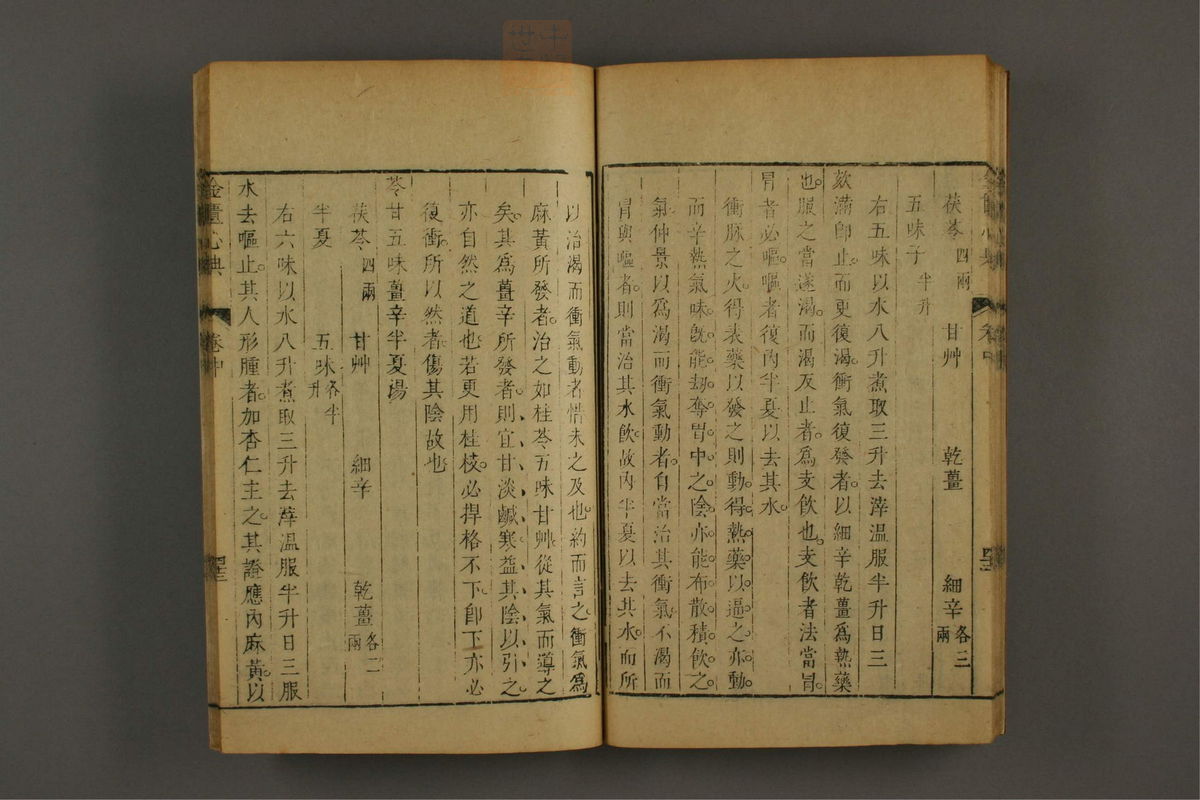 茯苓四兩 甘艸 乾薑 細辛各三兩
五味子半升
右五味以水八升煮取三升去滓温服半升日三
欬滿卽止而更復渴衝氣復發者以細辛乾薑爲熱藥
也服之當遂渴而渴反止者爲支飲也支飲者法當冒
冒者必嘔嘔者復內半夏以去其水
衝脉之火得表藥以發之則動得熱藥以逼之亦動
而辛熱氣味旣能劫奪胃中之陰亦能布散積飲之
氣仲景以爲渴而衝氣動者自當治其衝氣不渴而
冒與嘔者則當治其水飲故內半夏以去其水而所
以治渴而衝氣動者惜未之及也約而言之衝氣爲
麻黃所發者治之如桂苓五味甘艸從其氣而導之
矣其爲薑辛所發者則宜甘淡鹹寒益其陰以引之
亦自然之道也若更用桂枝必捍格不下卽下亦必
復衝所以然者傷其陰故也
苓甘五味薑辛半夏湯
茯苓四兩 甘艸 細辛 乾薑各二兩
半夏 五味各半升
右六味以水八升煮取三升去滓温服半升日三服
水去嘔止其人形腫者加杏仁主之其證應內麻黃以
金匱心典 卷中